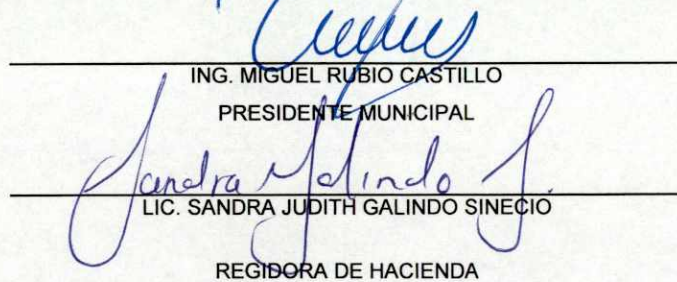 ING. MIGUEL RUBIO CASTILLO
PRESIDENTE MUNICIPAL
Sandra Galindo S.
LIC. SANDRA JUDITH GALINDO SINECIO
REGIDORA DE HACIENDA